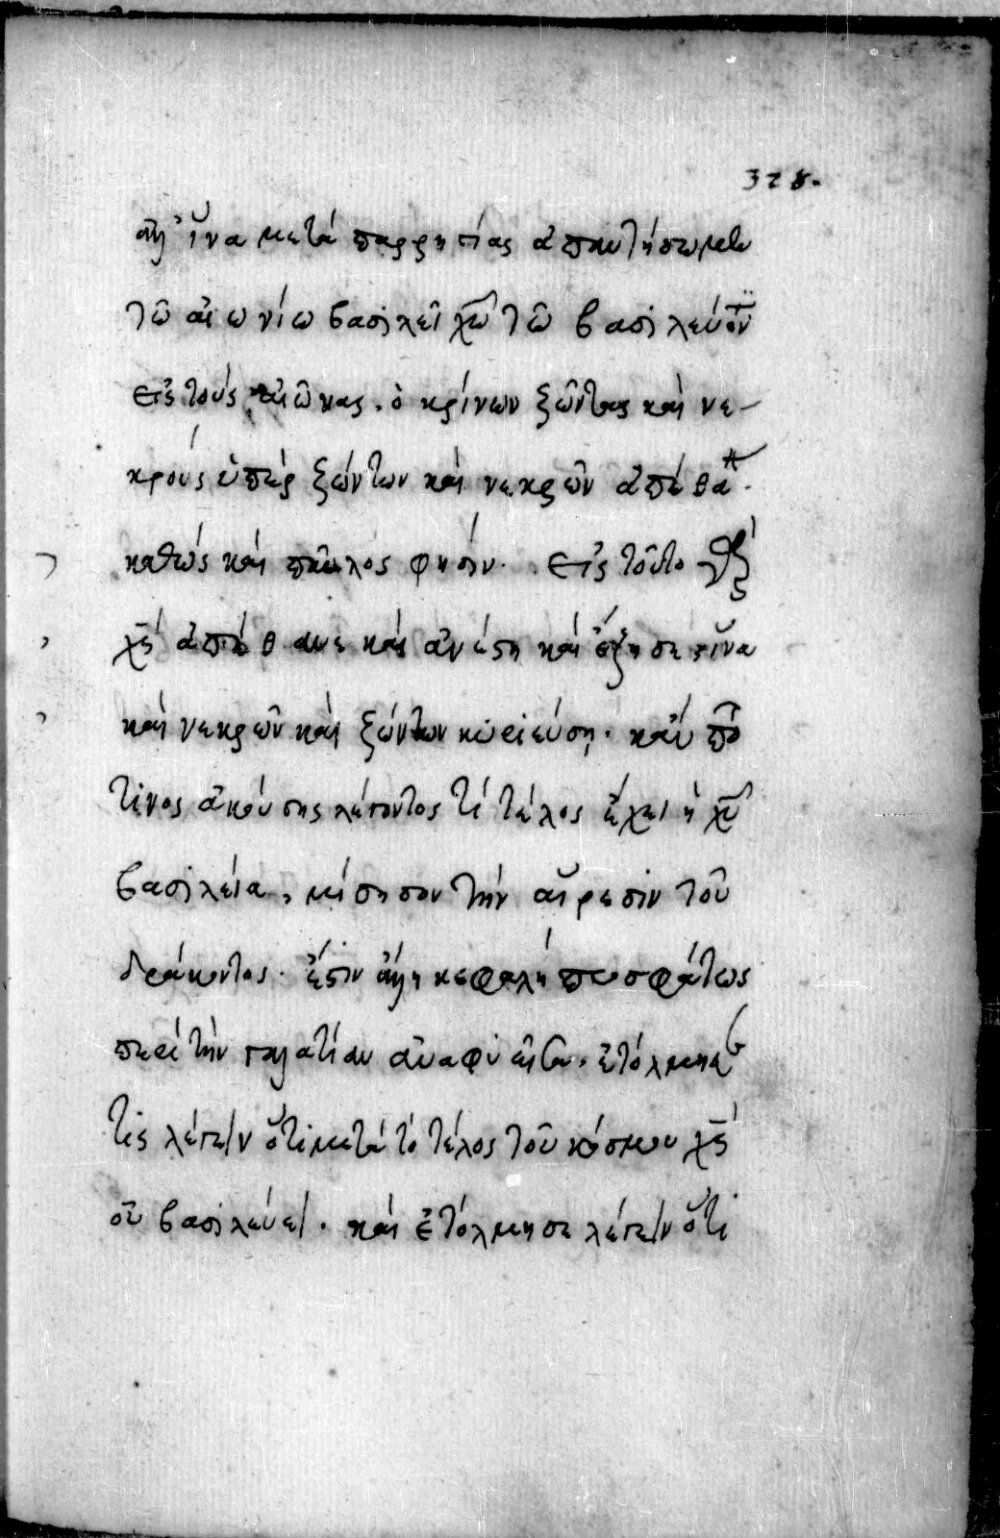 328.
ἀλλ' ἵνα μετὰ παρρησίας ἀπαντήσωμεν
τῶ αἰωνίω βασιλεῖ χῶ τῶ βασιλεύοντι
εἰς τοὺς αἰῶνας. ὁ κρίνων ζῶντας καὶ νε-
κροὺς ὑπὲρ ζώντων καὶ νεκρῶν ἀπέθα.
καθὼς καὶ παῦλος φησὶν. εἰς τοῦτο γὰρ
χς ἀπέθανε καὶ ἀνέστη καὶ ἔζησε ἵνα
καὶ νεκρῶν καὶ ζώντων κυριεύση. κἄν πό
τινος ἀκούσης λέγοντος τί τέλος ἔχει ἡ χυ
βασιλεία, μίσησον τὴν αἵρεσιν τοῦ
δράκοντος. ἐστὶν ἄλλη κεφαλὴ προσφάτως
περὶ τὴν γαλατίαν ἀναφυεῖσα. ἐτόλμησέ
τις λέγειν ὅτι μετὰ τὸ τέλος τοῦ κόσμου χς
οὐ βασιλεύει. καὶ ἐτόλμησε λέγειν ὅτι